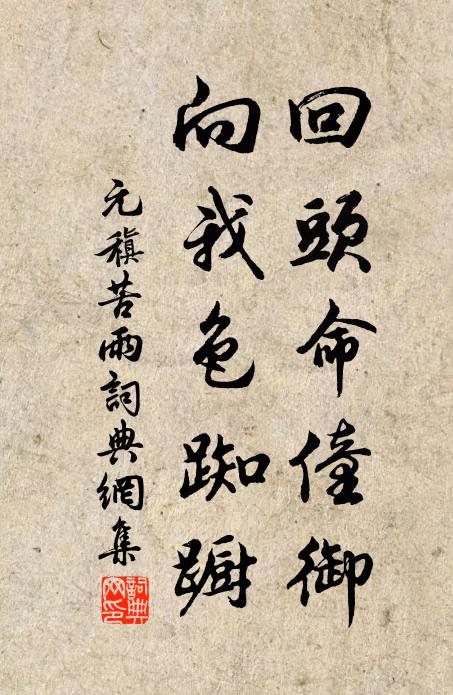 回頭命僮御
向我色踟躕
元稹苦雨詞典網集
詞典
文印